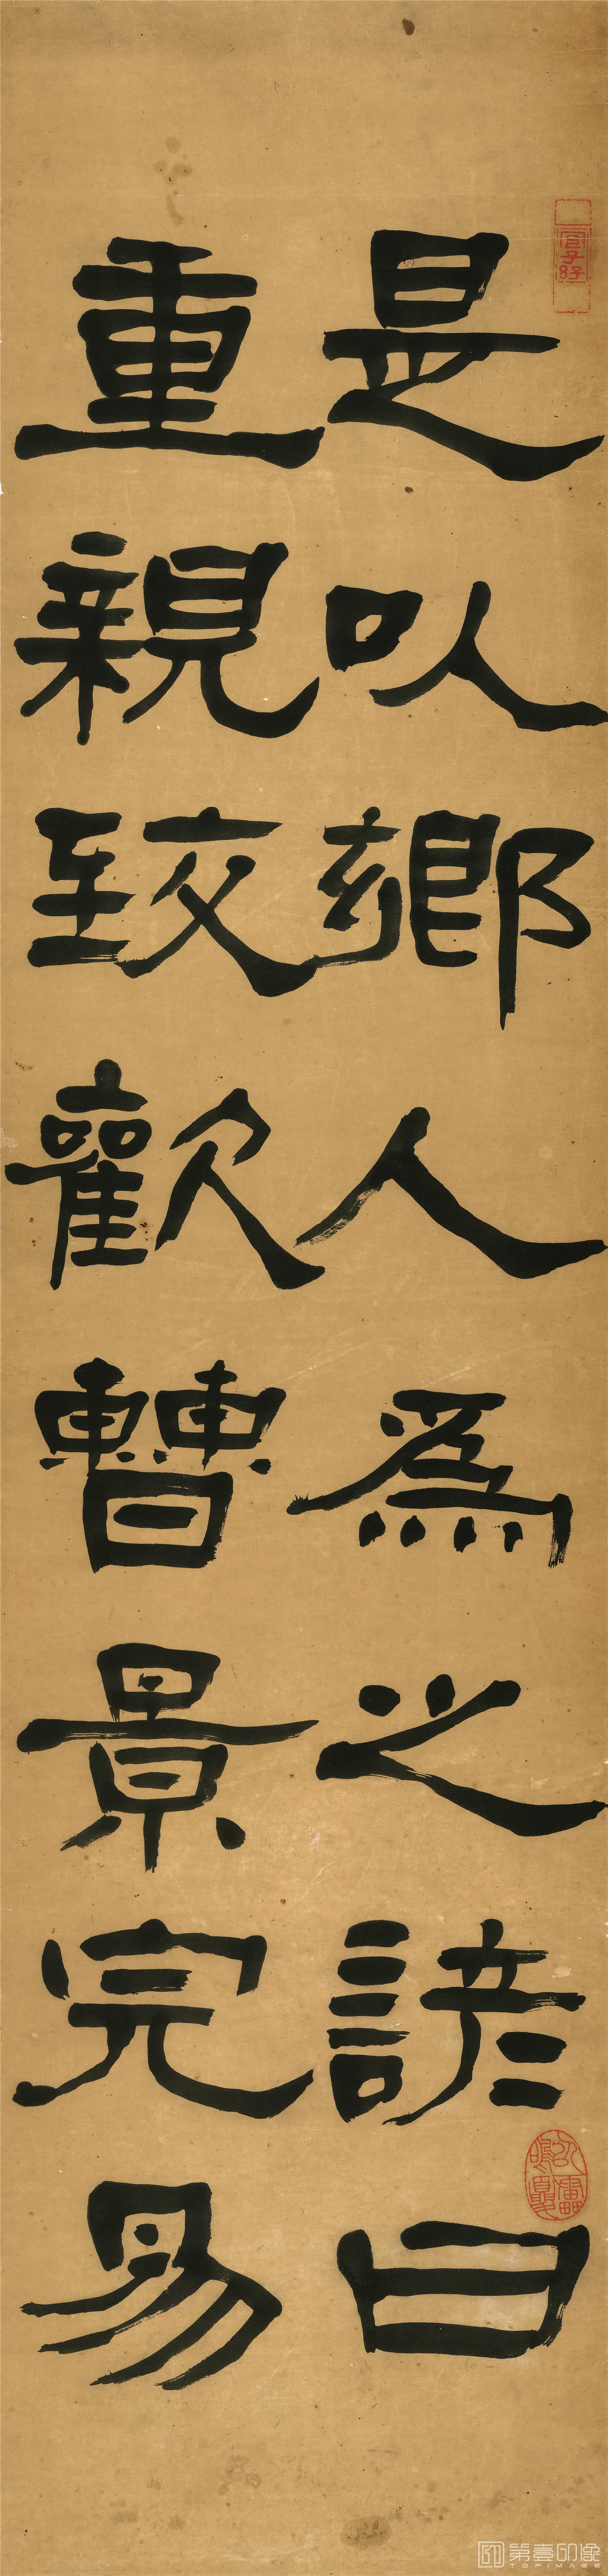 是以鄉人為之諺曰
重親致歡曹景完易
第壹印像
TOPIMAGE